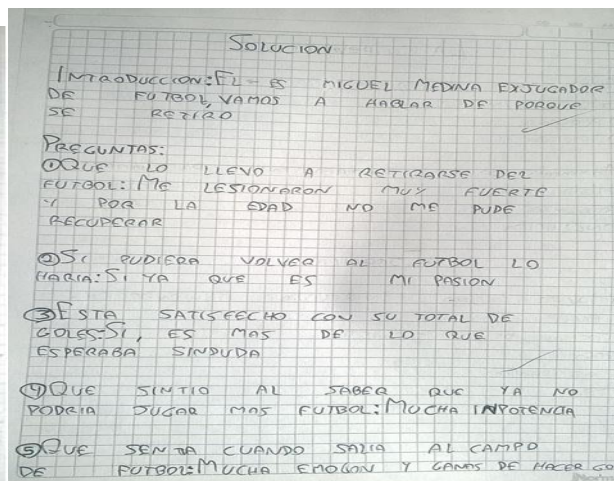 SOLUCION
INTRODUCCION: EL ES MIGUEL MEDINA EXJUGADOR
DE FUTBOL, VAMOS A HABLAR DE PORQUE
SE RETIRO
PREGUNTAS:
① QUE LO LLEVO A RETIRARSE DEL
FUTBOL: ME LESIONARON MUY FUERTE
Y POR LA EDAD NO ME PUDE
RECUPERAR
② SI PUDIERA VOLVER AL FUTBOL LO
HARIA: SI YA QUE ES MI PASION
③ ESTA SATISFECHO CON SU TOTAL DE
GOLES: SI, ES MAS DE LO QUE
ESPERABA SINDUDA
④ QUE SINTIO AL SABER QUE YA NO
PODRIA JUGAR MAS FUTBOL: MUCHA INPOTENCIA
⑤ QUE SENTIA CUANDO SALIA AL CAMPO
DE FUTBOL: MUCHA EMOCION Y GANAS DE HACER GO